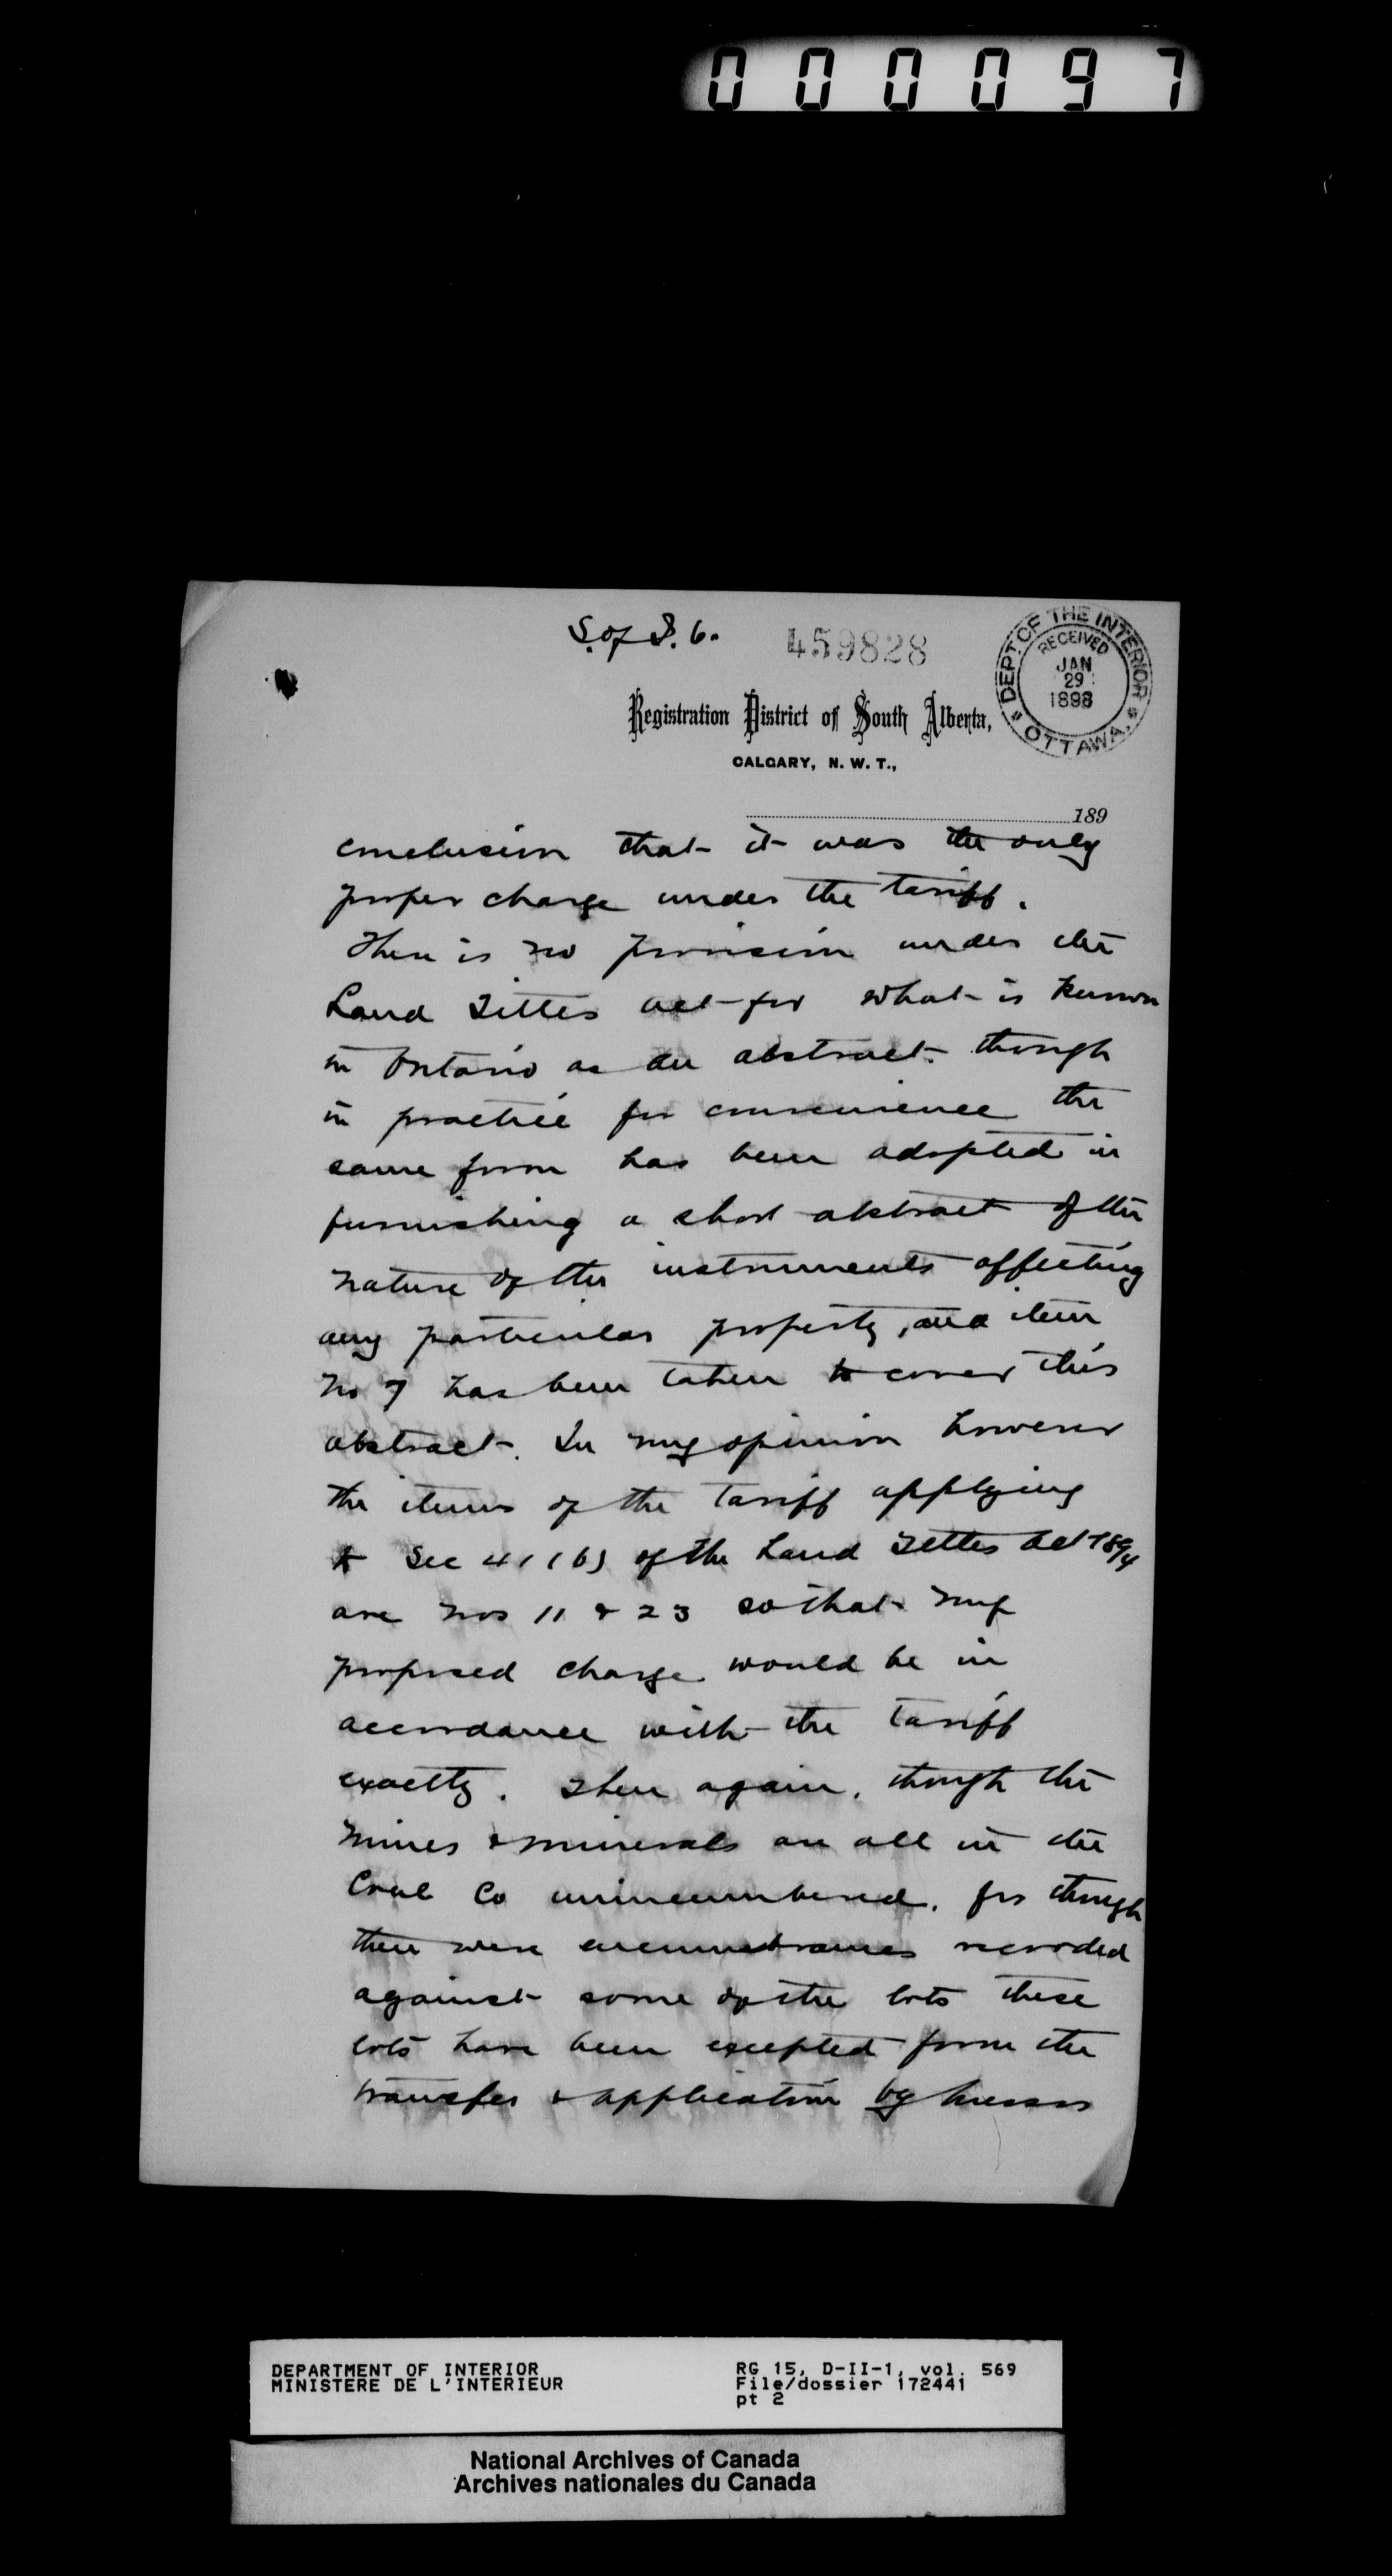 000097
S. of I. 6.
459828
DEPT. OF THE INTERIOR
RECEIVED
JAN
29
1898
OTTAWA.
Registration District of South Alberta,
CALGARY, N. W. T.,
189
conclusion that it was the only
proper charge under the tariff.
There is no provision under the
Land Titles act for what is known
in Ontario as an abstract. though
in practice for convenience the
same form has been adopted in
furnishing a short abstract of the
nature of the instruments affecting
any particular property, and item
No 7 has been taken to cover this
abstract. In my opinion however
the items of the tariff applying
to Sec 41 (b) of the Land Titles Act 1894
are nos 11 & 23 so that my
proposed charge would be in
accordance with the tariff
exactly. Then again, though the
mines & minerals are all in the
Coal Co unincumbered, for though
there were encumbrances recorded
against some of the lots these
lots have been excepted from the
transfer & application by Messrs
DEPARTMENT OF INTERIOR
MINISTERE DE L'INTERIEUR
RG 15, D-II-1, vol. 569
File/dossier 172441
pt 2
National Archives of Canada
Archives nationales du Canada